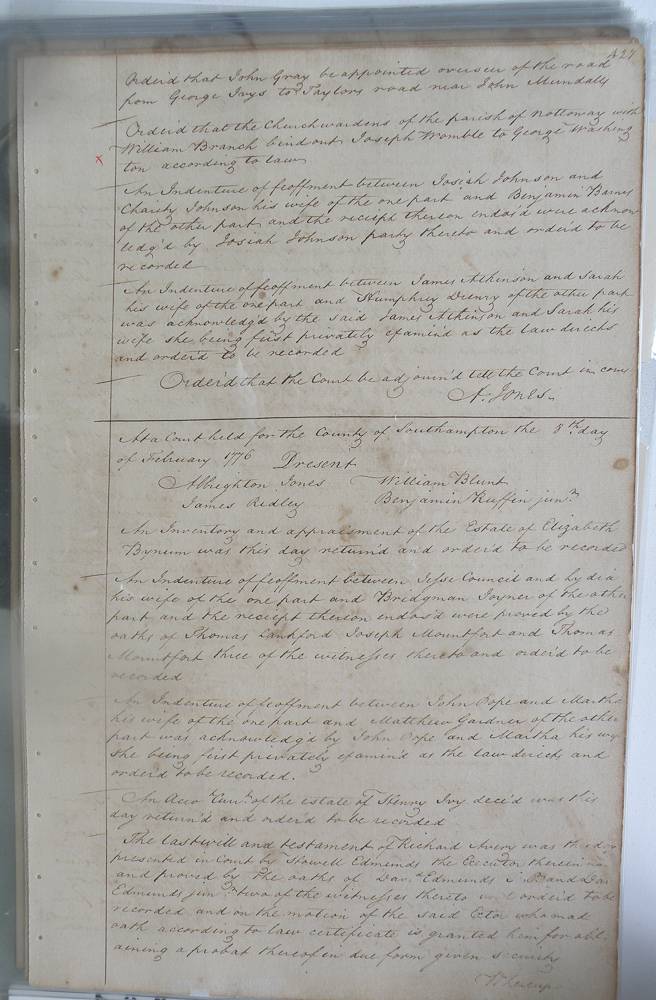 427
Order'd that John Gray be appointed overseer of the road
from George Jays to Taylors road near John Mundalls
Order'd that the Churchwardens of the parish of Nottoway with
William Branch bind out Joseph Womble to George Washing
ton according to law
An Indenture of feoffment between Josiah Johnson and
Charity Johnson his wife of the one part and Benjamin Barnes
of the other part and the receipt thereon endos'd were acknow
ledg'd by Josiah Johnson party thereto and order'd to be
recorded
An Indenture of feoffment between James Atkinson and Sarah
his wife of the one part and Humphrey Drewry of the other part
was acknowledg'd by the said James Atkinson and Sarah his
wife she being first privately examin'd as the law directs
and order'd to be recorded
Order'd that the Court be adjourn'd till the Court in cours
A. Jones
At a Court held for the County of Southampton the 8th day
of February 1776 Present
Albrighton Jones William Blunt
James Ridley Benjamin Ruffin junr.
An Inventory and appraisment of the Estate of Elizabeth
Bynum was this day return'd and order'd to be recorded
An Indenture of feoffment between Jesse Council and Lydia
his wife of the one part and Bridgman Joyner of the other
part and the receipt thereon endos'd were proved by the
oaths of Thomas Lankford Joseph Mountfort and Thomas
Mountfort three of the witnesses thereto and order'd to be
recorded
An Indenture of feoffment between John Pope and Martha
his wife of the one part and Matthew Gardner of the other
part was acknowledg'd by John Pope and Martha his wife
she being first privately examin'd as the law directs and
order'd to be recorded.
An Accot. Curt. of the estate of Henry Ivy dece'd was this
day return'd and order'd to be recorded
The last will and testament of Richard Avery was this day
presented in Court by Howell Edmunds the Executor therein
and proved by the oaths of Edmunds and
Edmunds junr. two of the witnesses thereto order'd to be
recorded and on the motion of the said Exctor who mad
oath according to law certificate is granted him for obt
aining a probat thereof in due form given security
Whereup